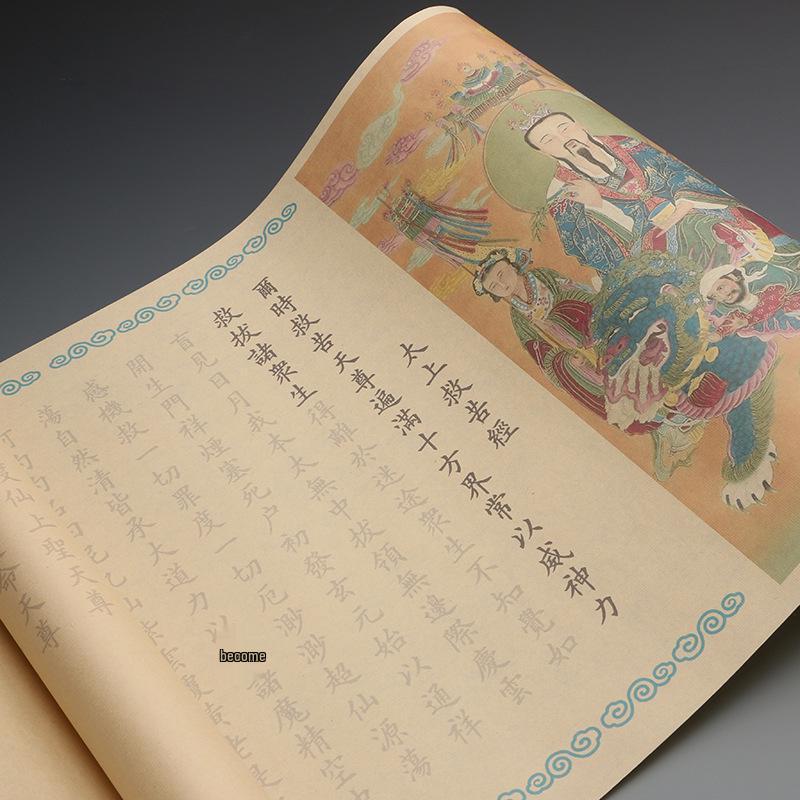 太上救苦經
爾時救苦天尊遍滿十方界常以威神力
救拔諸衆生得離於迷途衆生不知覺如
盲見日月我本太無中拔領無邊際慶雲
開生門祥煙塞死户初發玄元始以通祥
感機救一切罪度一切厄渺渺超仙源蕩
蕩自然清皆承大道力以諸魔精空
紫雲覆黃老是
仙上聖天尊
命天尊
become